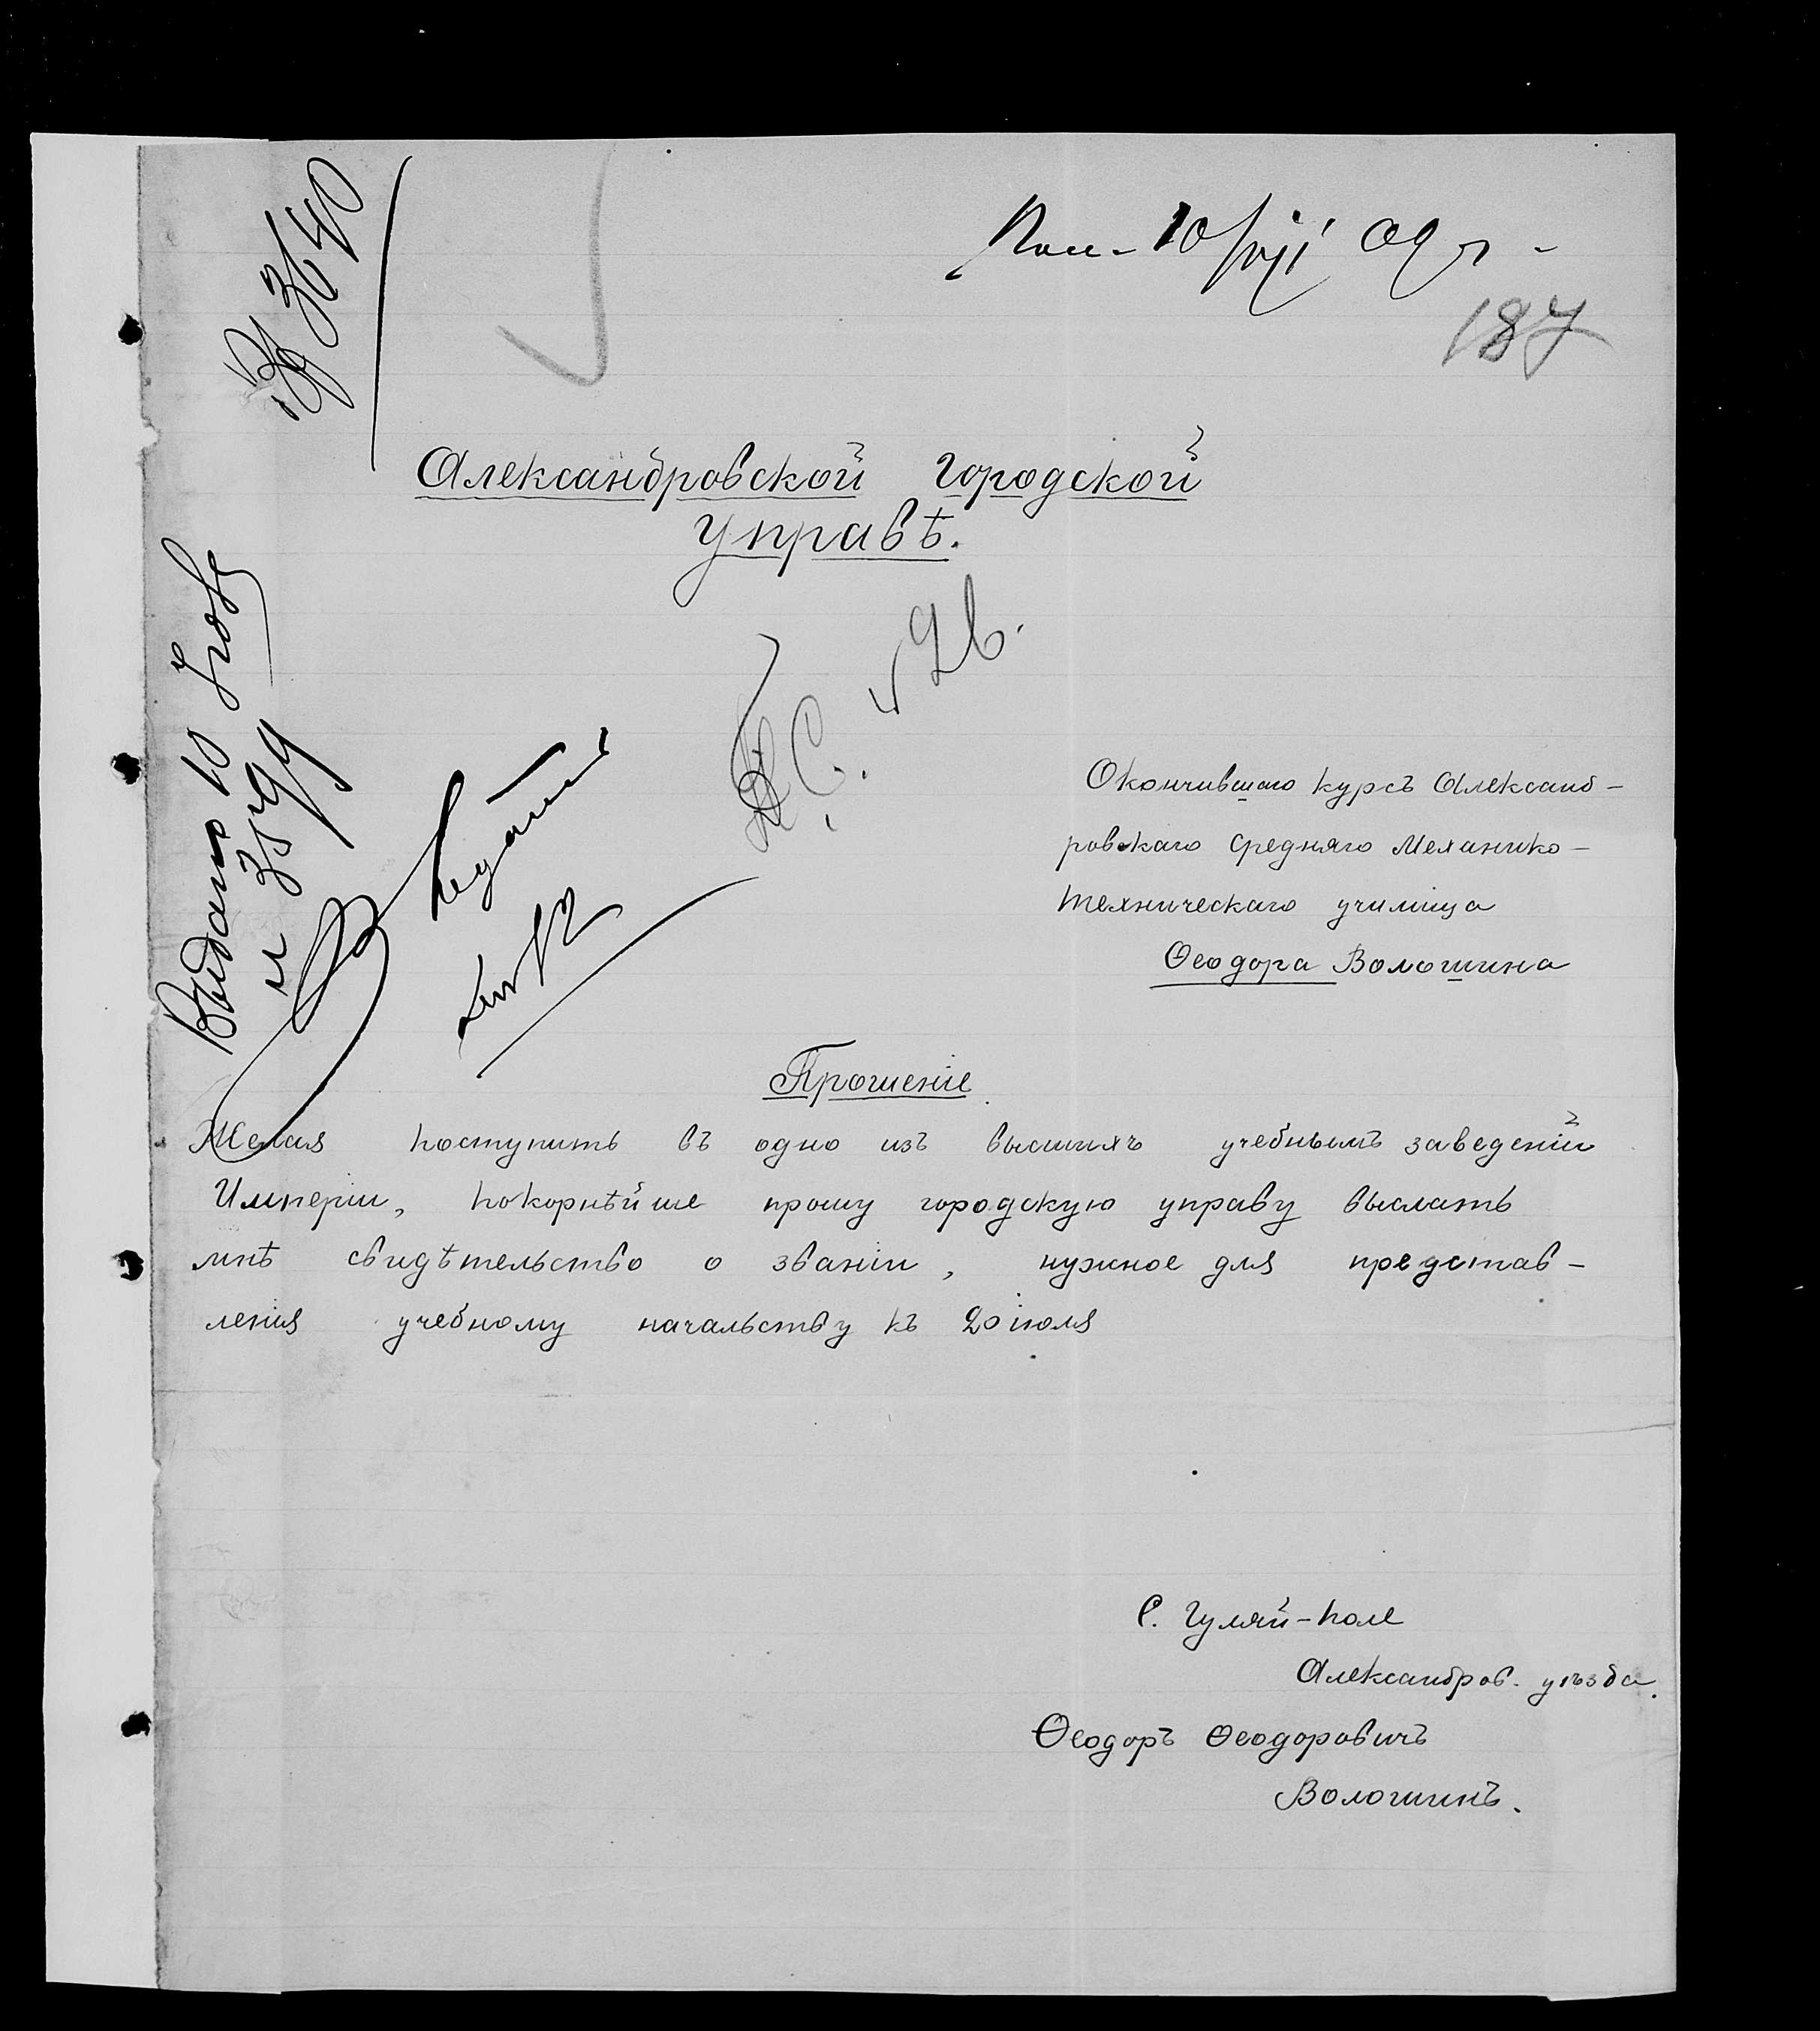 3640
Пол. 10/VII 09 г.
187
Александровской Городской
Управѣ.
Окончившаго курсъ Александ-
ровскаго Средняго Механико-
технического училища
Ѳеодора Волошина
Прошеніе
Желая поступить въ одно изъ высшихъ учебнымъ заведеній
Имперіи, покорнѣйше прошу городскую управу выслать
мнѣ свидѣтельство о званіи, нужное для представ-
ленія учебному начальству къ 20 іюля
С. Гуляй-поле
Александров. уѣзда.
Ѳеодоръ Ѳеодоровичъ
Волошинъ.